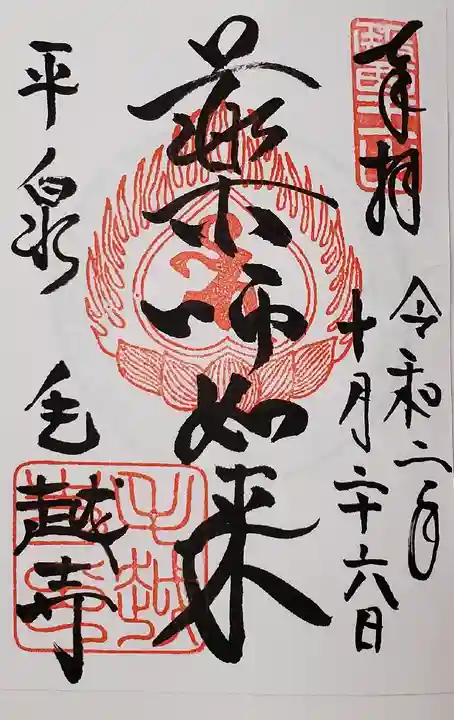 奉拝
令和二年
十月二十六日
薬師如来
平泉 毛越寺
毛越寺